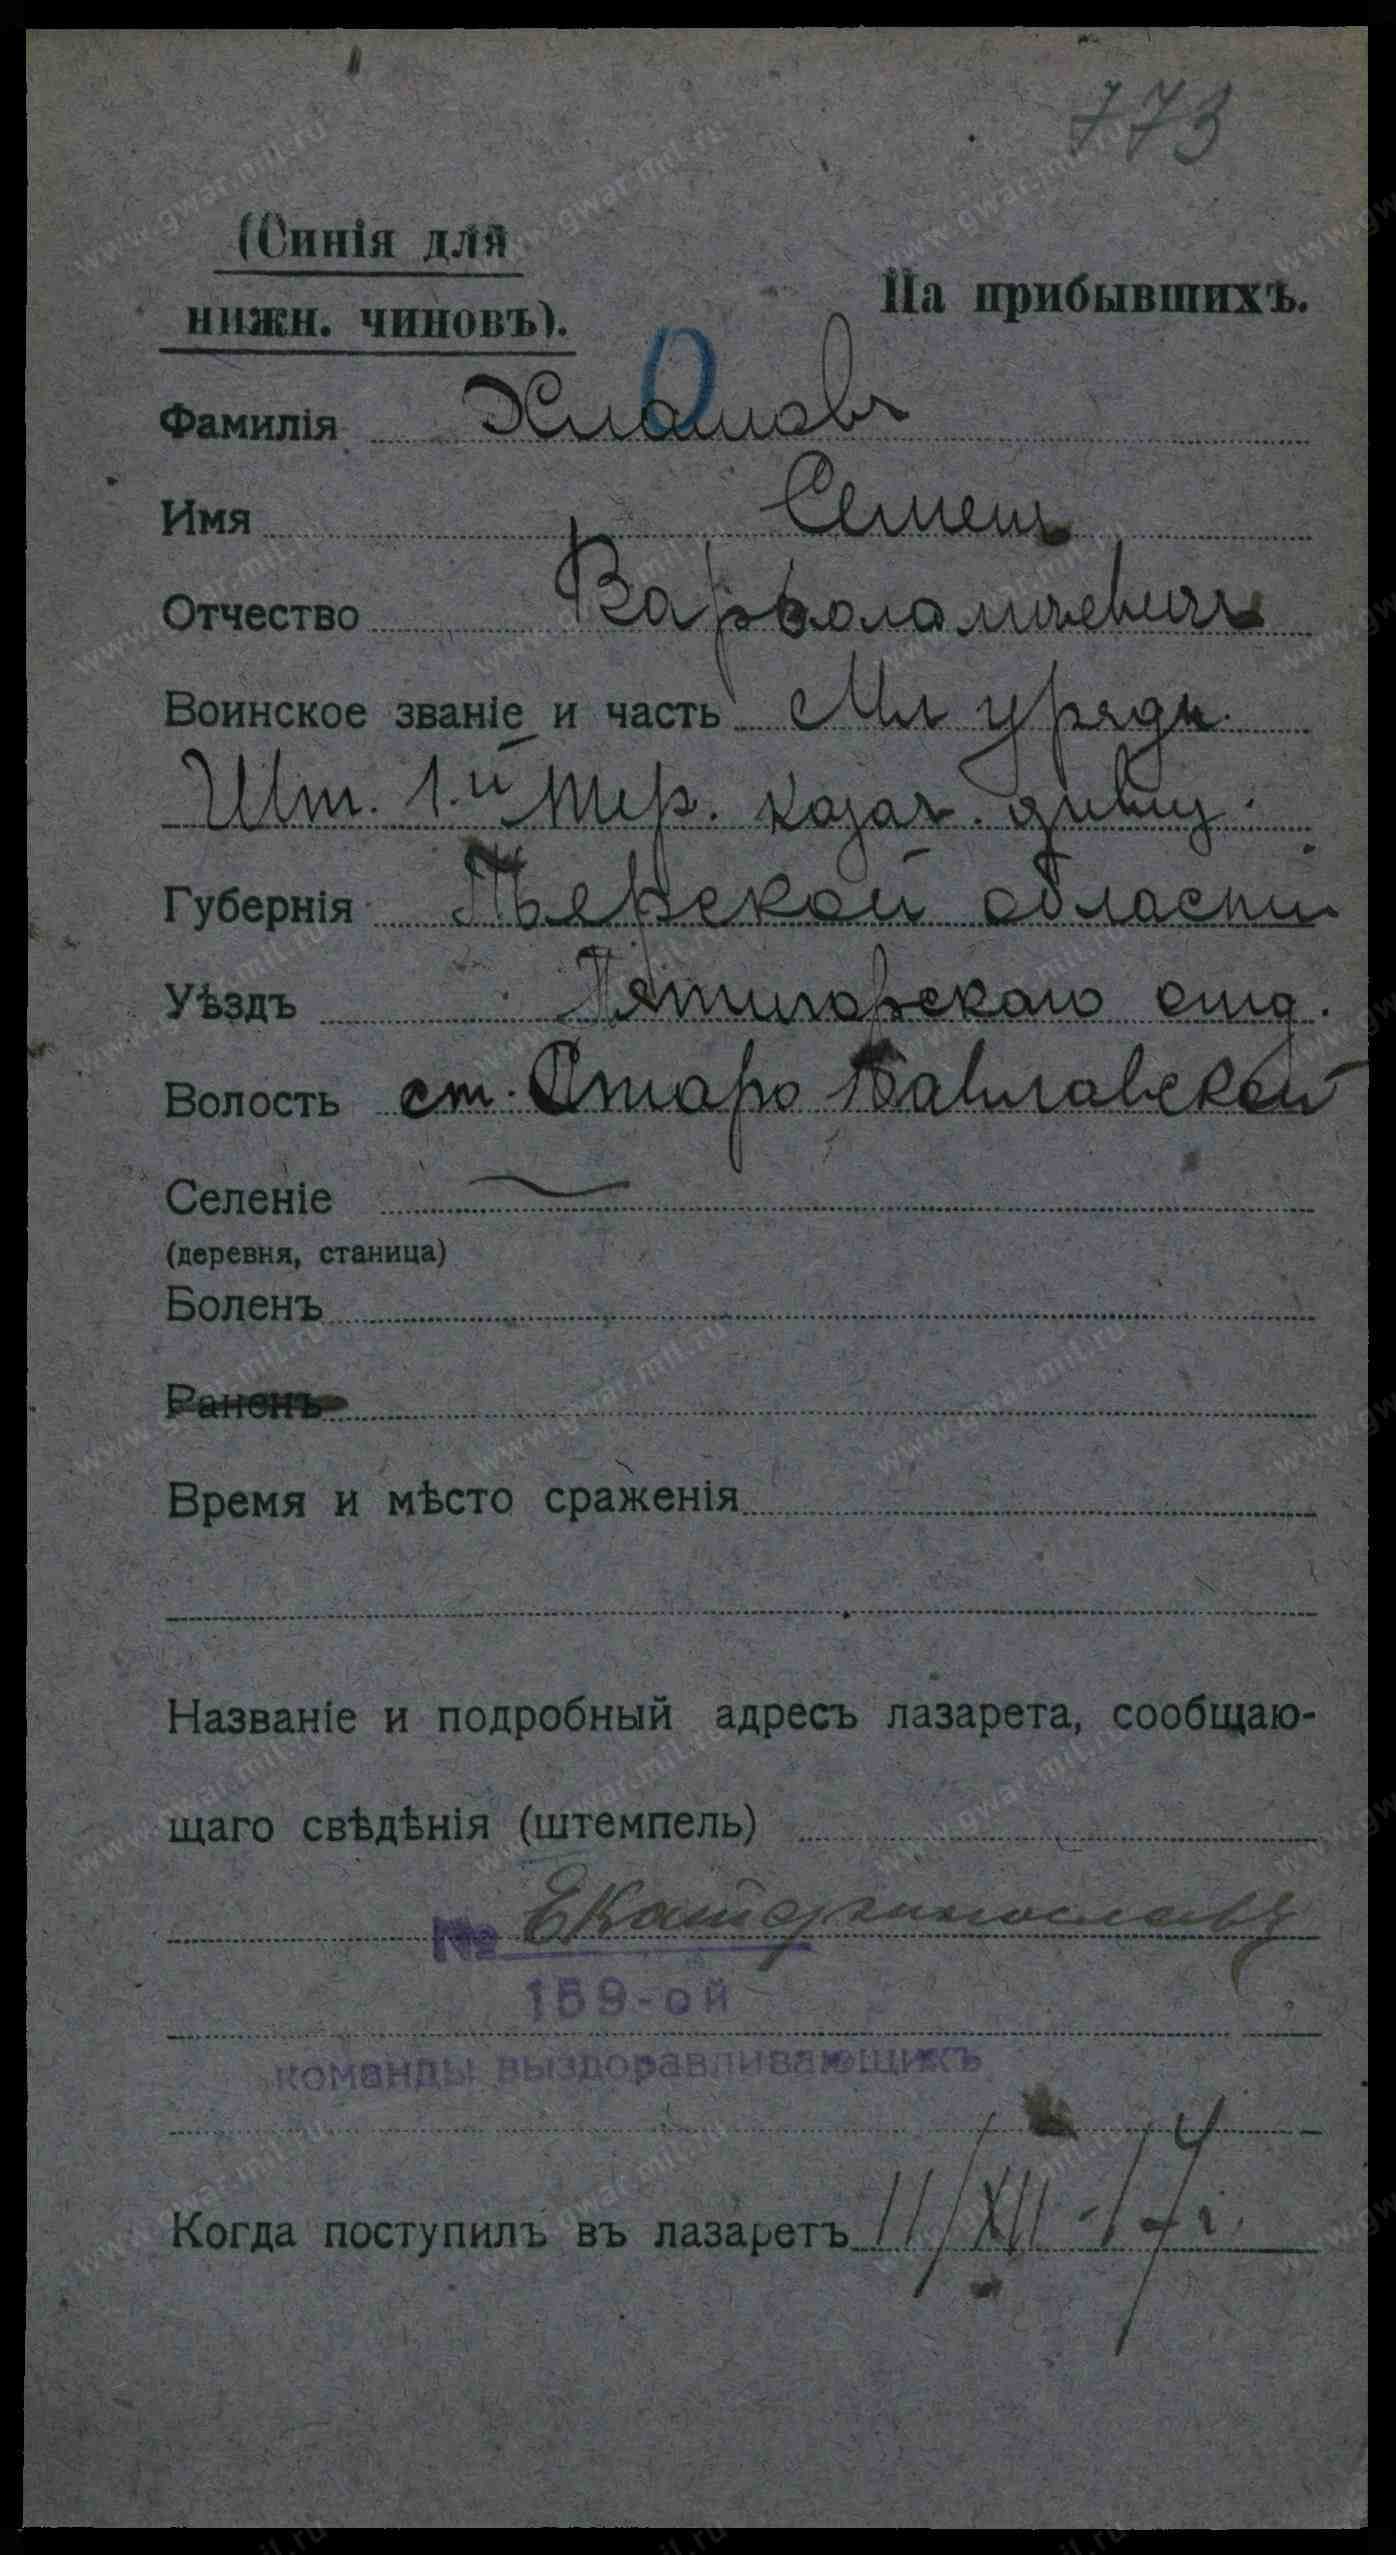 773
(Синія для
нижн. чиновъ).
На прибывшихъ.
Фамилія Хламовъ
Имя Семенъ
Отчество Варфоломеевичъ
Воинское званіе и часть Мл урядн.
Шт. 1.й Тер. казач. дивиз.
Губернія Терской области
Уѣздъ Пятигорскаго отд.
Волость ст. Старо Павловской
Селеніе
(деревня, станица)
Боленъ
Раненъ
Время и мѣсто сраженія
Названіе и подробный адресъ лазарета, сообщаю-
щаго свѣдѣнія (штемпель)
№ Екатеринославъ
159-ой
команды выздоравливающихъ
Когда поступилъ въ лазаретъ 11/XII-17 г.